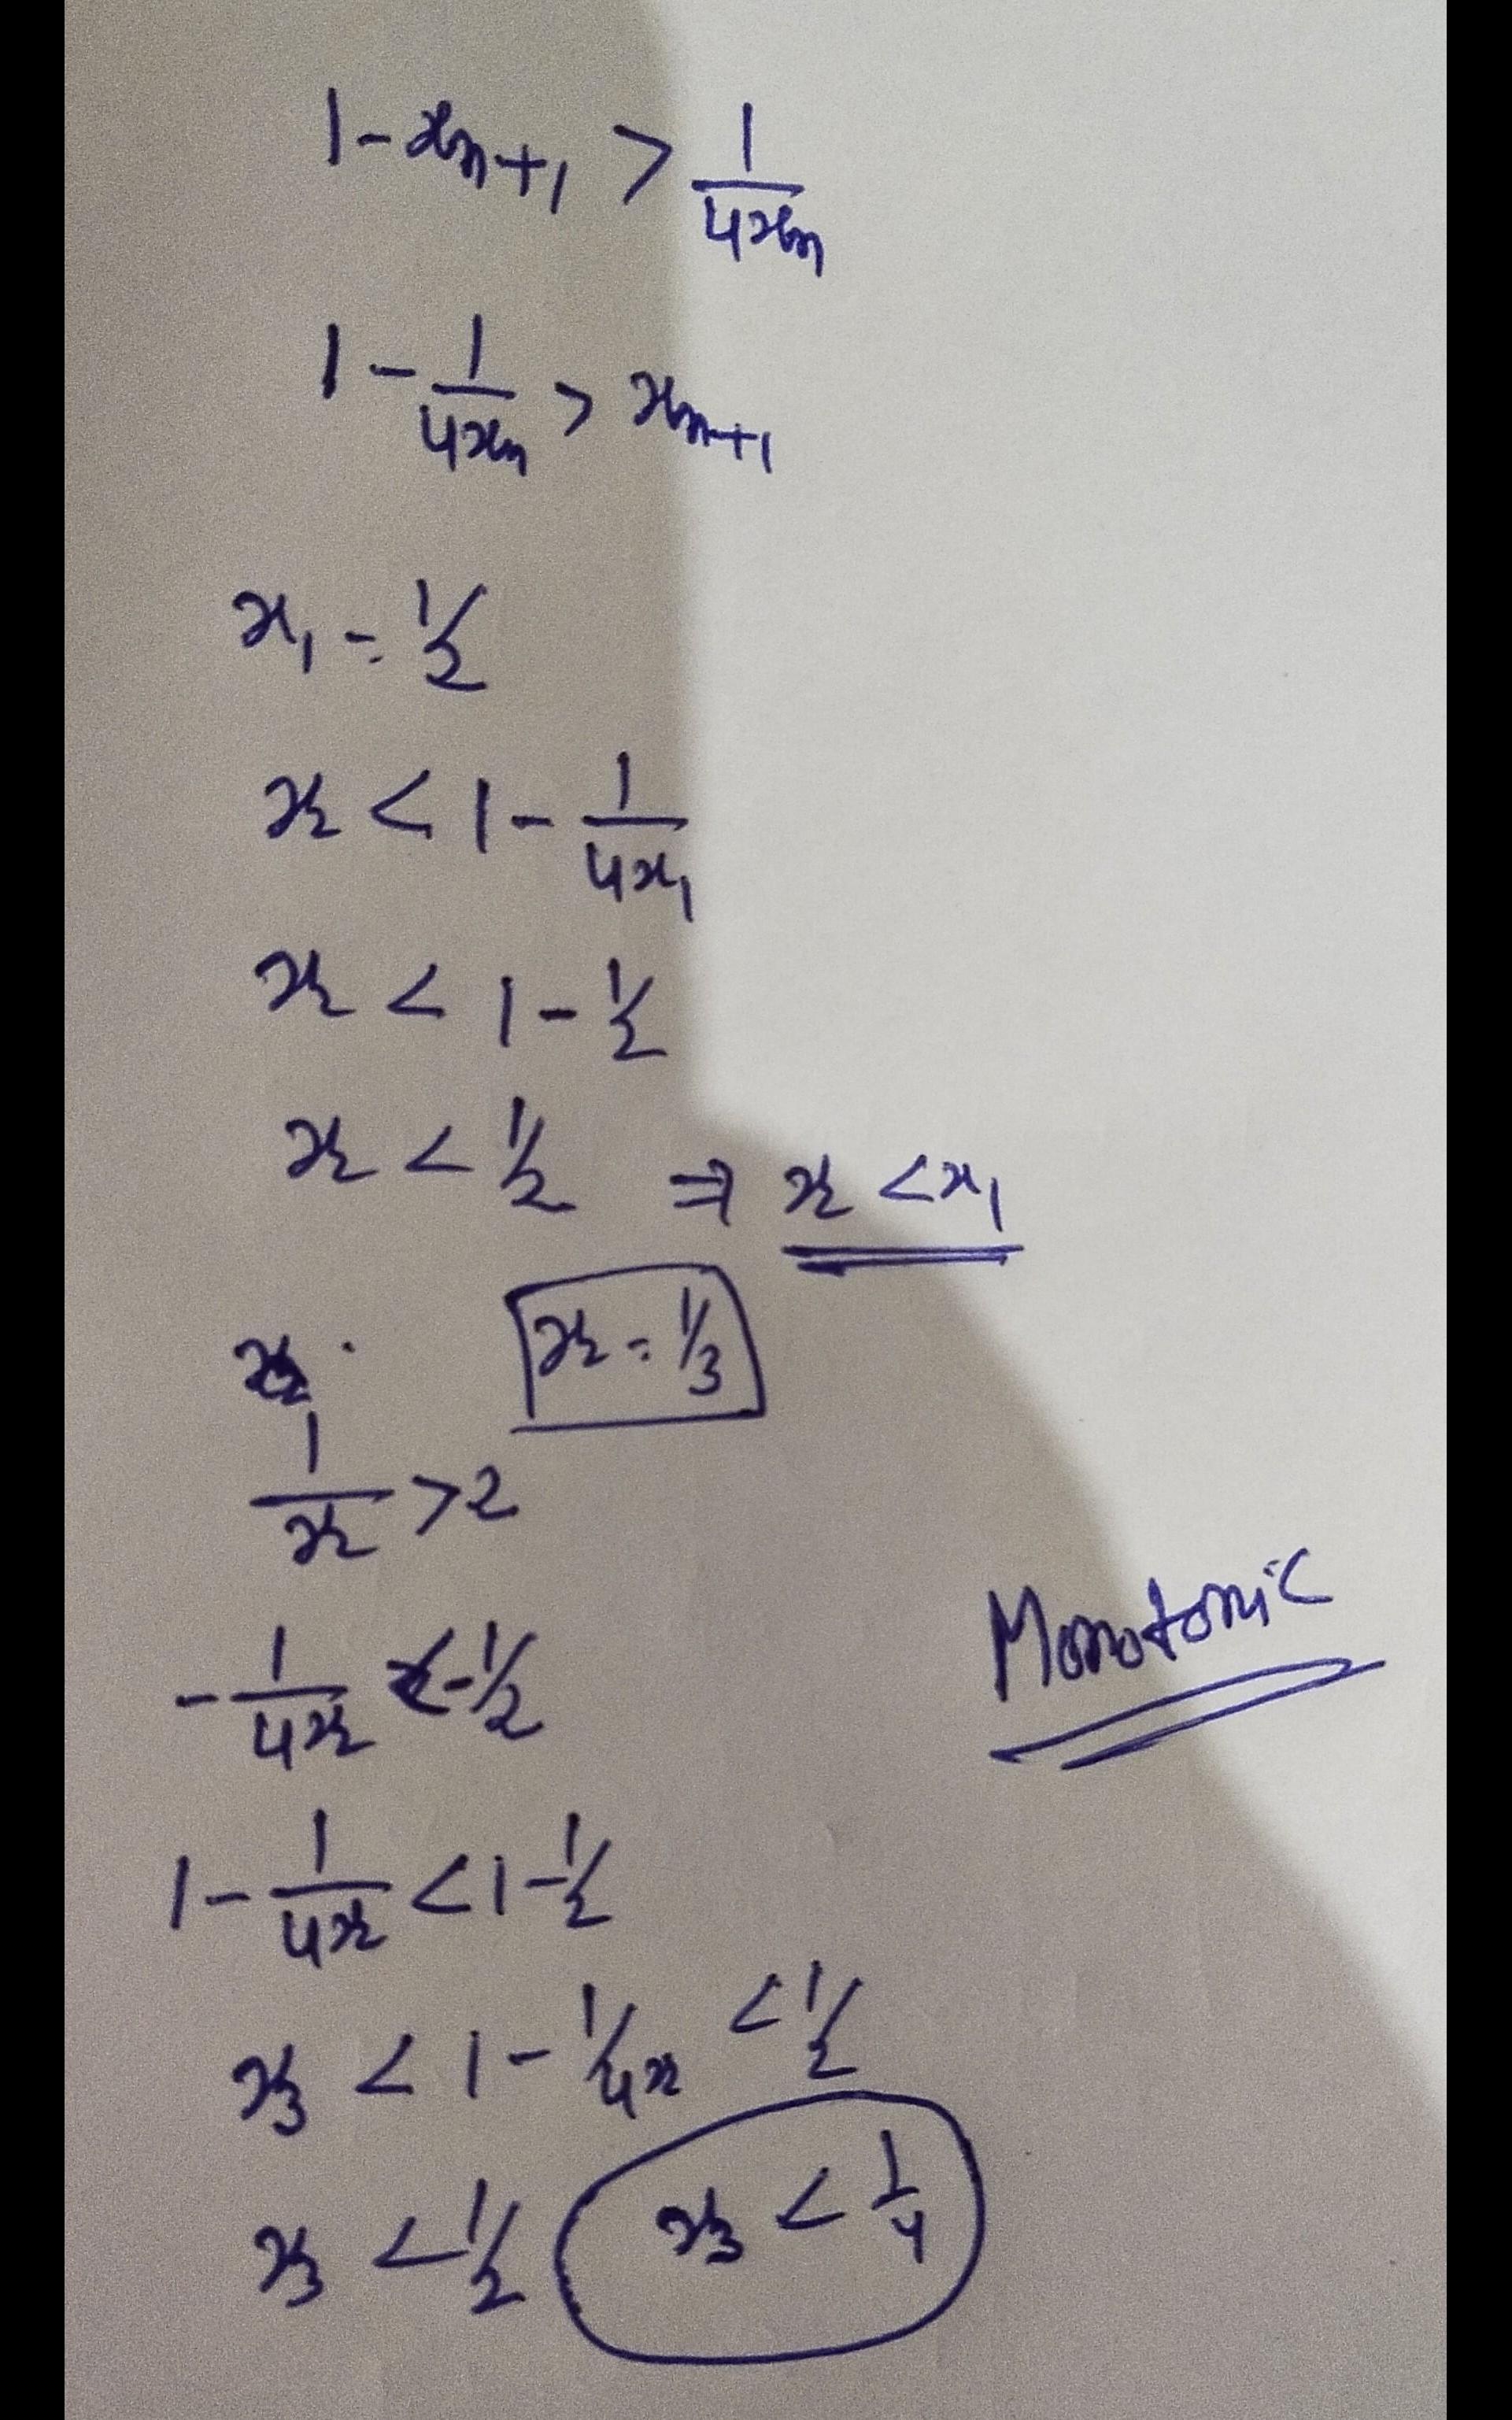 1 - xₙ₊₁ > 1/4xₙ
1 - 1/4xₙ > xₙ₊₁
x₁ = 1/2
x₂ < 1 - 1/4x₁
x₂ < 1 - 1/2
x₂ < 1/2 ⇒ x₂ < x₁
x₂ = 1/3
1/x₂ > 2
Monotonic
-1/4x₂ < -1/2
1 - 1/4x₂ < 1 - 1/2
x₃ < 1 - 1/4x₂ < 1/2
x₃ < 1/2 x₃ < 1/4